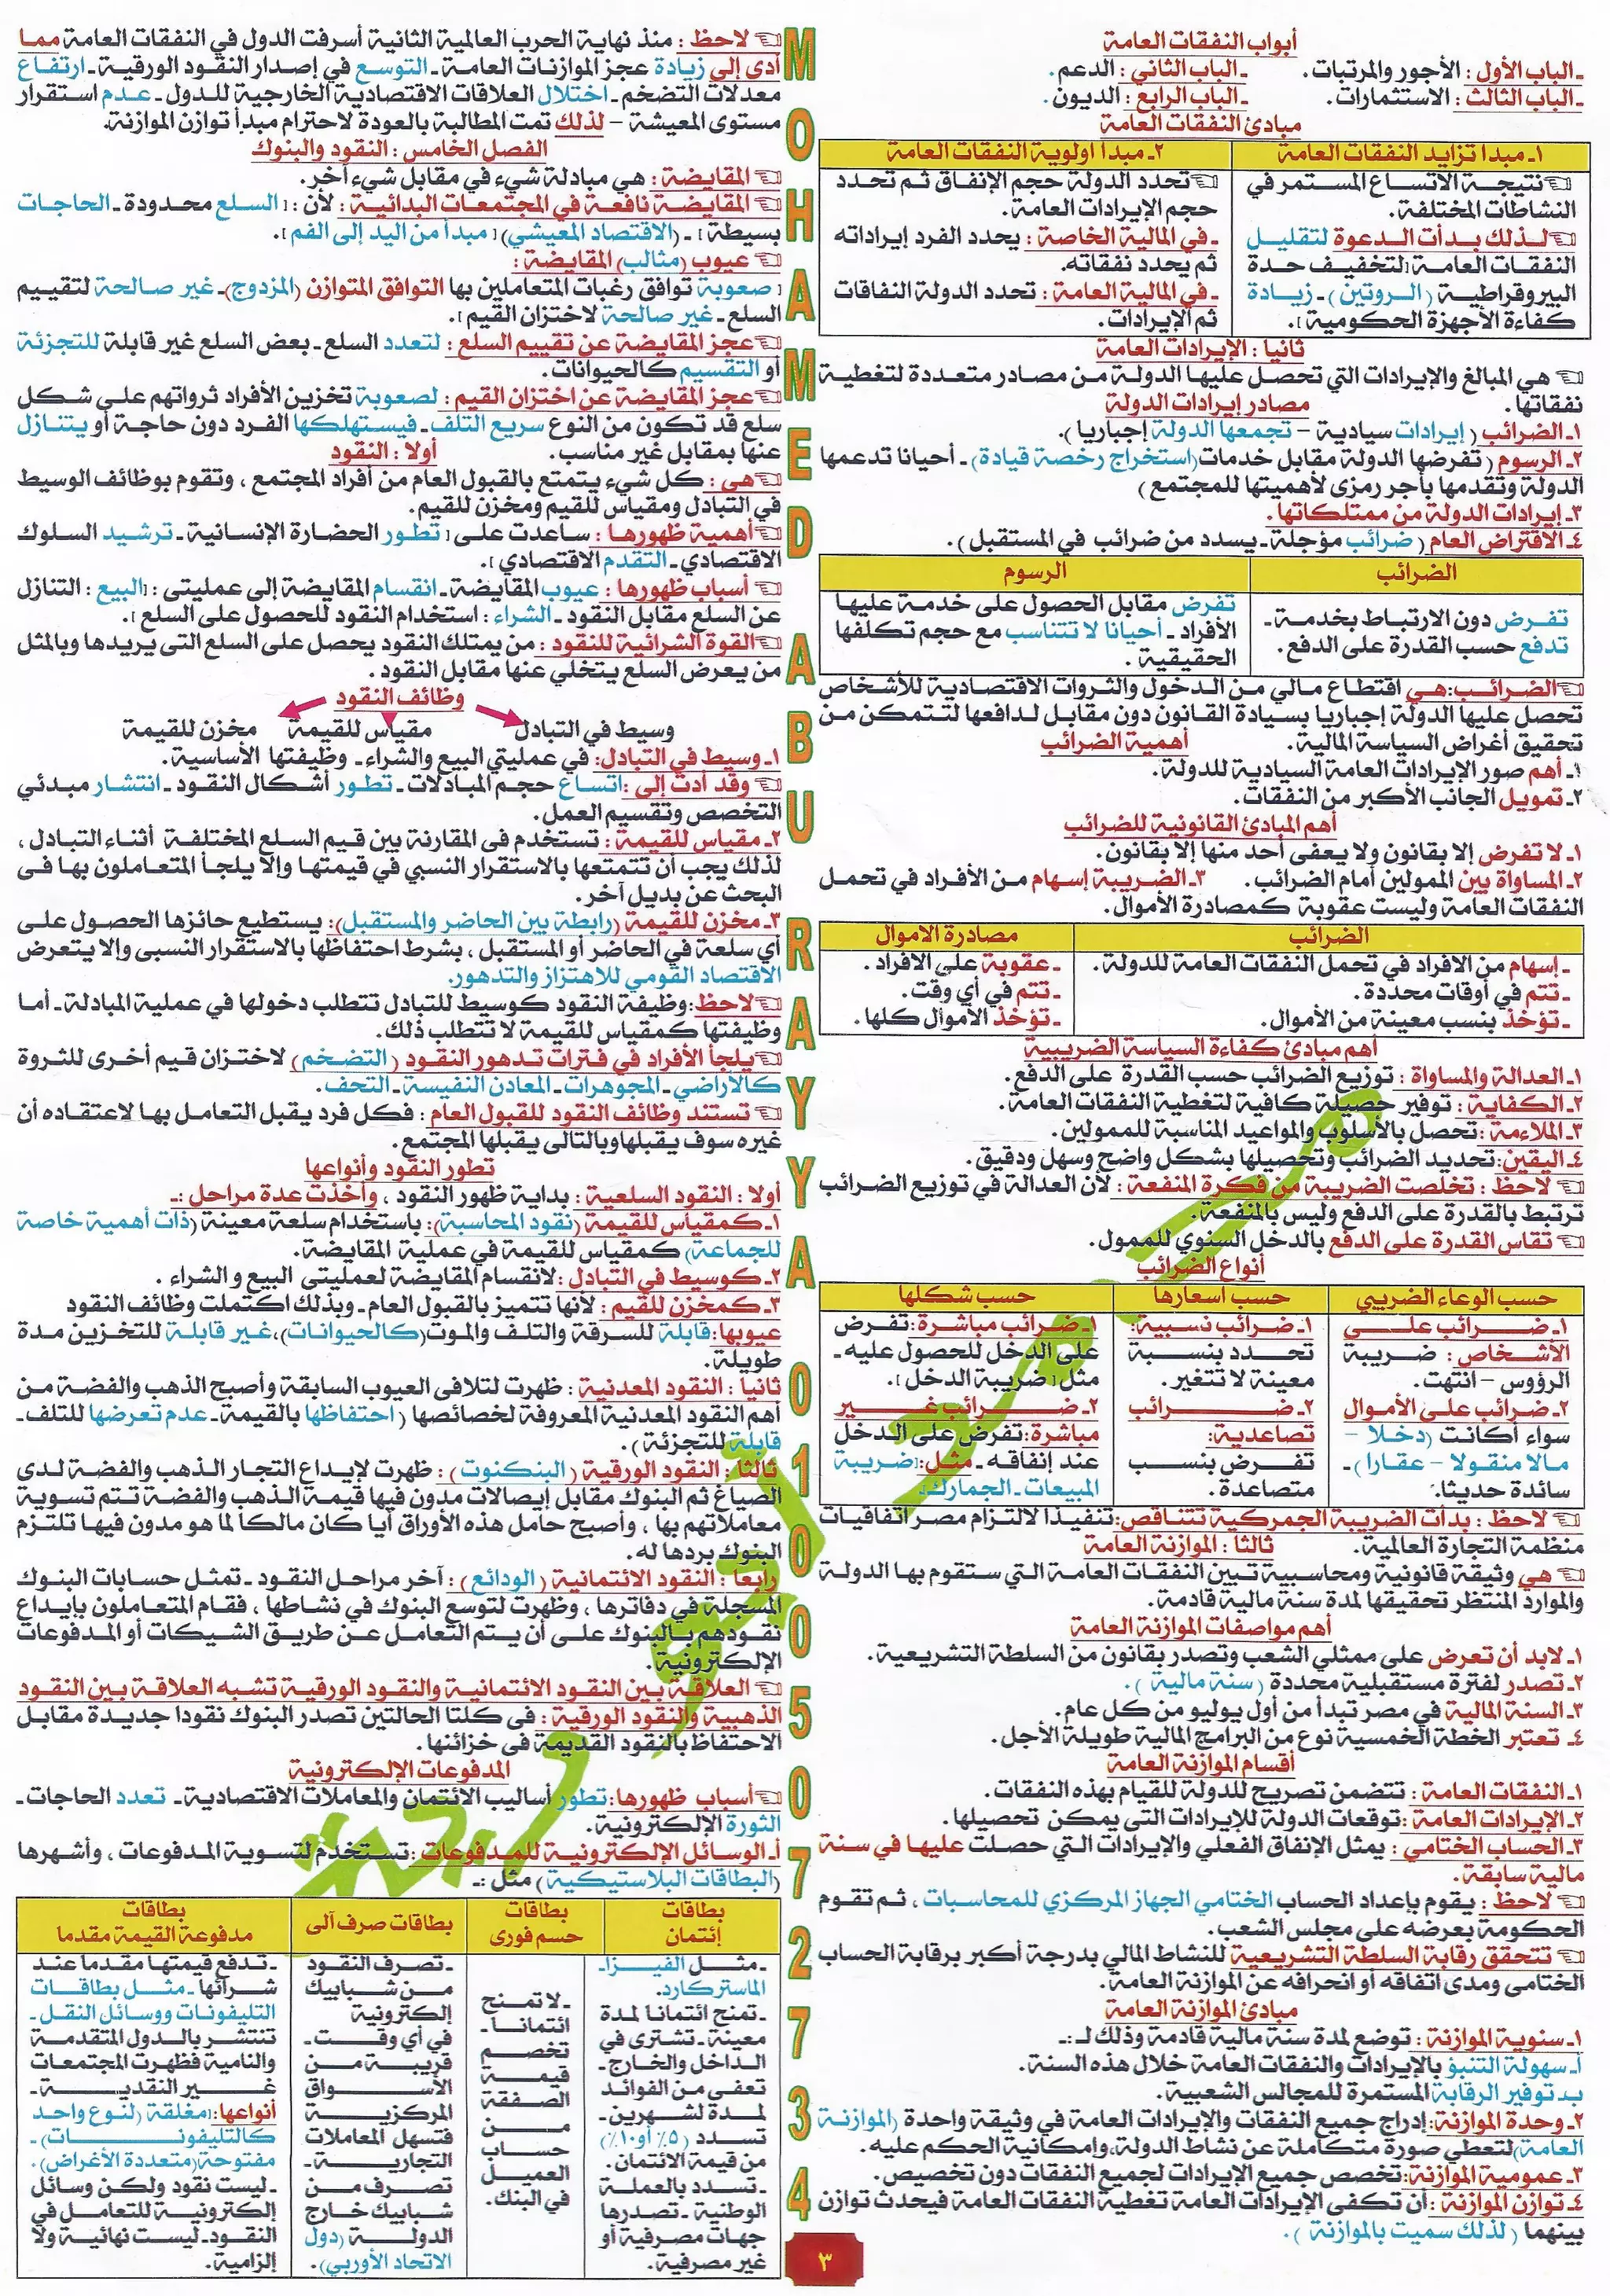 أبواب النفقات العامة
ـ الباب الأول : الأجور والمرتبات. ـ الباب الثاني : الدعم.
ـ الباب الثالث : الاستثمارات. ـ الباب الرابع : الديون.
مبادئ النفقات العامة
١ـ مبدأ تزايد النفقات العامة
نتيجة الاتساع المستمر في
النشاطات المختلفة.
لذلك بدأت الدعوة لتقليل
النفقات العامة [لتخفيف حدة
البيروقراطية (الروتين) ـ زيادة
كفاءة الأجهزة الحكومية].
٢ـ مبدأ أولوية النفقات العامة
تحدد الدولة حجم الإنفاق ثم تحدد
حجم الإيرادات العامة.
ـ في المالية الخاصة : يحدد الفرد إيراداته
ثم يحدد نفقاته.
ـ في المالية العامة : تحدد الدولة النفاقات
ثم الإيرادات.
ثانيا : الإيرادات العامة
هي المبالغ والإيرادات التي تحصل عليها الدولة من مصادر متعددة لتغطية
نفقاتها. مصادر إيرادات الدولة
١ـ الضرائب ( إيرادات سيادية – تجمعها الدولة إجباريا ).
٢ـ الرسوم ( تفرضها الدولة مقابل خدمات (استخراج رخصة قيادة) ـ أحيانا تدعمها
الدولة وتقدمها بأجر رمزى لأهميتها للمجتمع )
٣ـ إيرادات الدولة من ممتلكاتها.
٤ـ الاقتراض العام ( ضرائب مؤجلة ـ يسدد من ضرائب في المستقبل ).
الضرائب
تفرض دون الارتباط بخدمة ـ
تدفع حسب القدرة على الدفع.
الرسوم
تفرض مقابل الحصول على خدمة عليها
الأفراد ـ أحيانا لا تتناسب مع حجم تكلفها
الحقيقية .
الضرائب: هي اقتطاع مالي من الدخول والثروات الاقتصادية للأشخاص
تحصل عليها الدولة إجباريا بسيادة القانون دون مقابل لدافعها لتتمكن من
تحقيق أغراض السياسة المالية. أهمية الضرائب
١ـ أهم صور الإيرادات العامة السيادية للدولة.
٢ـ تمويل الجانب الأكبر من النفقات.
أهم المبادئ القانونية للضرائب
١ـ لا تفرض إلا بقانون ولا يعفى أحد منها إلا بقانون.
٢ـ المساواة بين الممولين أمام الضرائب. ٣ـ الضريبة إسهام من الأفراد في تحمل
النفقات العامة وليست عقوبة كمصادرة الأموال.
الضرائب
ـ إسهام من الأفراد في تحمل النفقات العامة للدولة.
ـ تتم في أوقات محددة.
ـ تؤخذ بنسب معينة من الأموال.
مصادرة الأموال
ـ عقوبة على الأفراد .
ـ تتم في أي وقت.
ـ تؤخذ الأموال كلها.
أهم مبادئ كفاءة السياسة الضريبية
١ـ العدالة والمساواة : توزيع الضرائب حسب القدرة على الدفع.
٢ـ الكفاية : توفير حصيلة كافية لتغطية النفقات العامة.
٣ـ الملاءمة : تحصل بالأسلوب والمواعيد المناسبة للممولين.
٤ـ اليقين: تحديد الضرائب وتحصيلها بشكل واضح وسهل ودقيق.
لاحظ : تخلصت الضريبة من فكرة المنفعة : لأن العدالة في توزيع الضرائب
ترتبط بالقدرة على الدفع وليس بالمنفعة.
تقاس القدرة على الدفع بالدخل السنوي للممول.
أنواع الضرائب
حسب الوعاء الضريبي
١ـ ضرائب على
الأشخاص : ضريبة
الرؤوس – انتهت.
٢ـ ضرائب على الأموال
سواء أكانت (دخلا –
مالا منقولا – عقارا) ـ
سائدة حديثا.
حسب أسعارها
١ـ ضرائب نسبية:
تحدد بنسبة
معينة لا تتغير.
٢ـ ضرائب
تصاعدية:
تفرض بنسب
متصاعدة.
حسب شكلها
١ـ ضرائب مباشرة: تفرض
على الدخل للحصول عليه ـ
مثل [ضريبة الدخل].
٢ـ ضرائب غير
مباشرة: تفرض على الدخل
عند إنفاقه ـ مثل: [ضريبة
المبيعات ـ الجمارك]
لاحظ : بدأت الضريبة الجمركية تتناقص: تنفيذا لالتزام مصر اتفاقيات
منظمة التجارة العالمية. ثالثا : الموازنة العامة
هي وثيقة قانونية ومحاسبية تبين النفقات العامة التي ستقوم بها الدولة
والموارد المنتظر تحقيقها لمدة سنة مالية قادمة.
أهم مواصفات الموازنة العامة
١ـ لابد أن تعرض على ممثلي الشعب وتصدر بقانون من السلطة التشريعية.
٢ـ تصدر لفترة مستقبلية محددة ( سنة مالية ).
٣ـ السنة المالية في مصر تبدأ من أول يوليو من كل عام.
٤ـ تعتبر الخطة الخمسية نوع من البرامج المالية طويلة الأجل.
أقسام الموازنة العامة
١ـ النفقات العامة : تتضمن تصريح للدولة للقيام بهذه النفقات.
٢ـ الإيرادات العامة : توقعات الدولة للإيرادات التى يمكن تحصيلها.
٣ـ الحساب الختامي : يمثل الإنفاق الفعلي والإيرادات التي حصلت عليها في سنة
مالية سابقة.
لاحظ : يقوم بإعداد الحساب الختامي الجهاز المركزي للمحاسبات ، ثم تقوم
الحكومة بعرضه على مجلس الشعب.
تتحقق رقابة السلطة التشريعية للنشاط المالي بدرجة أكبر برقابة الحساب
الختامى ومدى اتفاقه أو انحرافه عن الموازنة العامة.
مبادئ الموازنة العامة
١ـ سنوية الموازنة : توضع لمدة سنة مالية قادمة وذلك لـ :ـ
أـ سهولة التنبؤ بالإيرادات والنفقات العامة خلال هذه السنة.
بـ توفير الرقابة المستمرة للمجالس الشعبية.
٢ـ وحدة الموازنة: إدراج جميع النفقات والإيرادات العامة في وثيقة واحدة (الموازنة
العامة) لتعطي صورة متكاملة عن نشاط الدولة، وإمكانية الحكم عليه.
٣ـ عمومية الموازنة: تخصص جميع الإيرادات لجميع النفقات دون تخصيص.
٤ـ توازن الموازنة : أن تكفى الإيرادات العامة تغطية النفقات العامة فيحدث توازن
بينهما ( لذلك سميت بالموازنة ).
MOHAMMED ABU RAYYA 01005077234
لاحظ : منذ نهاية الحرب العالمية الثانية أسرفت الدول في النفقات العامة مما
أدى إلى زيادة عجز الموازنات العامة ـ التوسع في إصدار النقود الورقية ـ ارتفاع
معدلات التضخم ـ اختلال العلاقات الاقتصادية الخارجية للدول ـ عدم استقرار
مستوى المعيشة – لذلك تمت المطالبة بالعودة لاحترام مبدأ توازن الموازنة.
الفصل الخامس : النقود والبنوك
المقايضة : هي مبادلة شيء في مقابل شيء آخر.
المقايضة نافعة في المجتمعات البدائية : لأن : [السلع محدودة ـ الحاجات
بسيطة] ـ (الاقتصاد المعيشي) [مبدأ من اليد إلى الفم].
عيوب (مثالب) المقايضة :
[صعوبة توافق رغبات المتعاملين بها التوافق المتوازن (المزدوج) ـ غير صالحة لتقييم
السلع ـ غير صالحة لاختزان القيم].
عجز المقايضة عن تقييم السلع : لتعدد السلع ـ بعض السلع غير قابلة للتجزئة
أو التقسيم كالحيوانات.
عجز المقايضة عن اختزان القيم : لصعوبة تخزين الأفراد ثرواتهم على شكل
سلع قد تكون من النوع سريع التلف ـ فيستهلكها الفرد دون حاجة أو يتنازل
عنها بمقابل غير مناسب. أولا : النقود
هى : كل شيء يتمتع بالقبول العام من أفراد المجتمع ، وتقوم بوظائف الوسيط
في التبادل ومقياس للقيم ومخزن للقيم.
أهمية ظهورها : ساعدت على [تطور الحضارة الإنسانية ـ ترشيد السلوك
الاقتصادي ـ التقدم الاقتصادي].
أسباب ظهورها : عيوب المقايضة ـ انقسام المقايضة إلى عمليتى : [البيع : التنازل
عن السلع مقابل النقود ـ الشراء : استخدام النقود للحصول على السلع].
القوة الشرائية للنقود : من يمتلك النقود يحصل على السلع التى يريدها وبالمثل
من يعرض السلع يتخلي عنها مقابل النقود .
وظائف النقود
وسيط في التبادل مقياس للقيمة مخزن للقيمة
١ـ وسيط في التبادل: في عمليتي البيع والشراء ـ وظيفتها الأساسية.
وقد أدت إلى : اتساع حجم المبادلات ـ تطور أشكال النقود ـ انتشار مبدئي
التخصص وتقسيم العمل.
٢ـ مقياس للقيمة : تستخدم فى المقارنة بين قيم السلع المختلفة أثناء التبادل ،
لذلك يجب أن تتمتعها بالاستقرار النسبي في قيمتها وإلا يلجأ المتعاملون بها فى
البحث عن بديل آخر.
٣ـ مخزن للقيمة (رابطة بين الحاضر والمستقبل): يستطيع حائزها الحصول على
أي سلعة في الحاضر أو المستقبل ، بشرط احتفاظها بالاستقرار النسبى وإلا يتعرض
الاقتصاد القومي للاهتزاز والتدهور.
لاحظ: وظيفة النقود كوسيط للتبادل تتطلب دخولها في عملية المبادلة ـ أما
وظيفتها كمقياس للقيمة لا تتطلب ذلك.
يلجأ الأفراد في فترات تدهور النقود ( التضخم ) لاختزان قيم أخرى للثروة
كالأراضي ـ المجوهرات ـ المعادن النفيسة ـ التحف.
تستند وظائف النقود للقبول العام : فكل فرد يقبل التعامل بها لاعتقاده أن
غيره سوف يقبلها وبالتالى يقبلها المجتمع.
تطور النقود وأنواعها
أولا : النقود السلعية : بداية ظهور النقود ، وأخذت عدة مراحل :ـ
١ـ كمقياس للقيمة (نقود المحاسبة): باستخدام سلعة معينة (ذات أهمية خاصة
للجماعة) كمقياس للقيمة في عملية المقايضة.
٢ـ كوسيط في التبادل : لانقسام المقايضة لعمليتى البيع و الشراء .
٣ـ كمخزن للقيم : لأنها تتميز بالقبول العام ـ وبذلك اكتملت وظائف النقود
عيوبها: قابلة للسرقة والتلف والموت (كالحيوانات)، غير قابلة للتخزين مدة
طويلة.
ثانيا : النقود المعدنية : ظهرت لتلافى العيوب السابقة وأصبح الذهب والفضة من
أهم النقود المعدنية المعروفة لخصائصها ( احتفاظها بالقيمة ـ عدم تعرضها للتلف ـ
قابلة للتجزئة ).
ثالثا : النقود الورقية ( البنكنوت ) : ظهرت لإيداع التجار الذهب والفضة لدى
الصياغ ثم البنوك مقابل إيصالات مدون فيها قيمة الذهب والفضة تتم تسوية
معاملاتهم بها ، وأصبح حامل هذه الأوراق أيا كان مالكا لما هو مدون فيها تلتزم
البنوك بردها له.
رابعا : النقود الائتمانية ( الودائع ) : آخر مراحل النقود ـ تمثل حسابات البنوك
المسجلة في دفاترها ، وظهرت لتوسع البنوك في نشاطها ، فقام المتعاملون بإيداع
نقودهم بالبنوك على أن يتم التعامل عن طريق الشيكات أو المدفوعات
الإلكترونية.
العلاقة بين النقود الائتمانية والنقود الورقية تشبه العلاقة بين النقود
الذهبية والنقود الورقية : فى كلتا الحالتين تصدر البنوك نقودا جديدة مقابل
الاحتفاظ بالنقود القديمة فى خزائنها.
المدفوعات الإلكترونية
أسباب ظهورها: تطور أساليب الائتمان والمعاملات الاقتصادية ـ تعدد الحاجات ـ
الثورة الإلكترونية.
أـ الوسائل الإلكترونية للمدفوعات : تستخدم لتسوية المدفوعات ، وأشهرها
(البطاقات البلاستيكية) مثل :ـ
بطاقات
إئتمان
ـ مثل الفيزا ـ
الماستركارد.
ـ تمنح ائتمانا لمدة
معينة ـ تشترى في
الداخل والخارج ـ
تعفى من الفوائد
لمدة لشهرين ـ
تسدد (٥٪ أو١٠٪)
من قيمة الائتمان.
ـ تسدد بالعملة
الوطنية ـ تصدرها
جهات مصرفية أو
غير مصرفية.
بطاقات
حسم فورى
ـ لا تمنح
ائتمانا ـ
تخصم
قيمة
الصفقة
من
حساب
العميل
في البنك.
بطاقات صرف آلى
ـ تصرف النقود
من شبابيك
إلكترونية
في أي وقت ـ
قريبة من
الأسواق
المركزية
فتسهل المعاملات
التجارية ـ
تصرف من
شبابيك خارج
الدولة (دول
الاتحاد الأوربي).
بطاقات
مدفوعة القيمة مقدما
ـ تدفع قيمتها مقدما عند
شرائها ـ مثل بطاقات
التليفونات ووسائل النقل ـ
تنتشر بالدول المتقدمة
والنامية فظهرت المجتمعات
غير النقدية ـ
أنواعها: [مغلقة (لنوع واحد
كالتليفونات) ـ
مفتوحة (متعددة الأغراض).
ـ ليست نقود ولكن وسائل
إلكترونية للتعامل في
النقود ـ ليست نهائية ولا
إلزامية.
٣